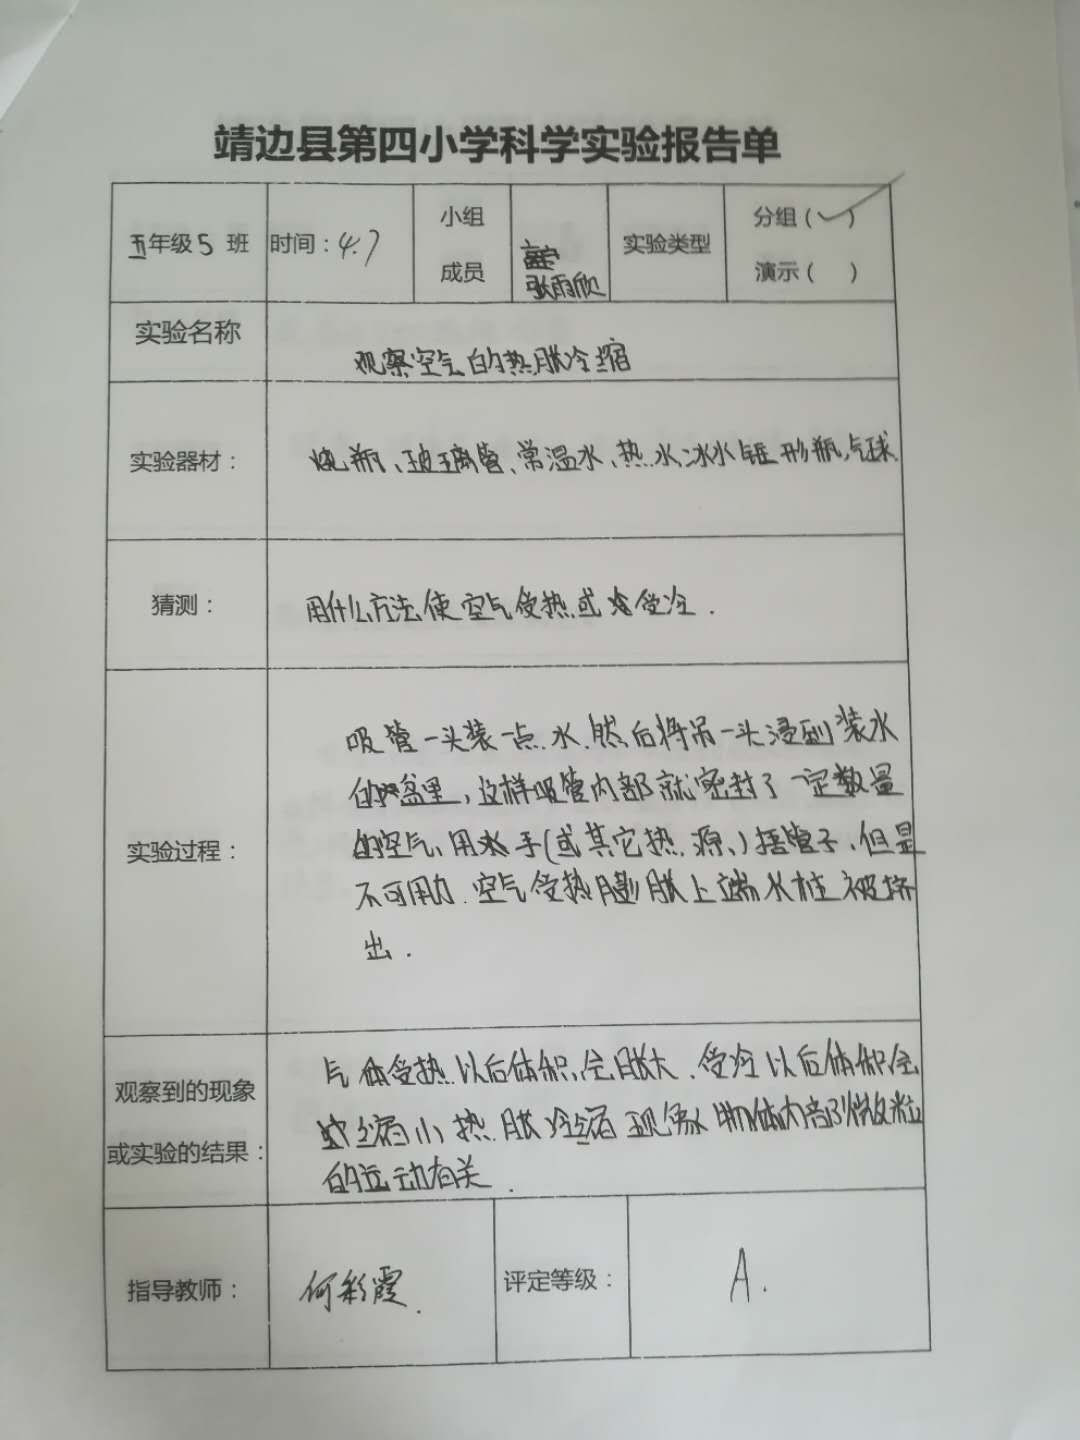 靖边县第四小学科学实验报告单
五年级5班 时间：4.7 小组成员 张雨欣 实验类型 分组（✓） 演示（ ）
实验名称 观察空气的热胀冷缩
实验器材： 烧瓶、玻璃管、常温水、热水、冰水锥形瓶、气球
猜测： 用什么方法使空气受热或受冷.
实验过程：
吸管一头装一点水.然后将另一头浸到装水
的盆里，这样吸管内部就密封了一定数量
的空气、用手(或其它热源、)捂管子、但是
不可用力.空气受热膨胀上端水柱被挤
出.
观察到的现象或实验的结果：
气体受热以后体积会胀大、受冷以后体积会
缩小热胀冷缩现象 物体内部微粒
的运动有关.
指导教师： 何彩霞. 评定等级： A.